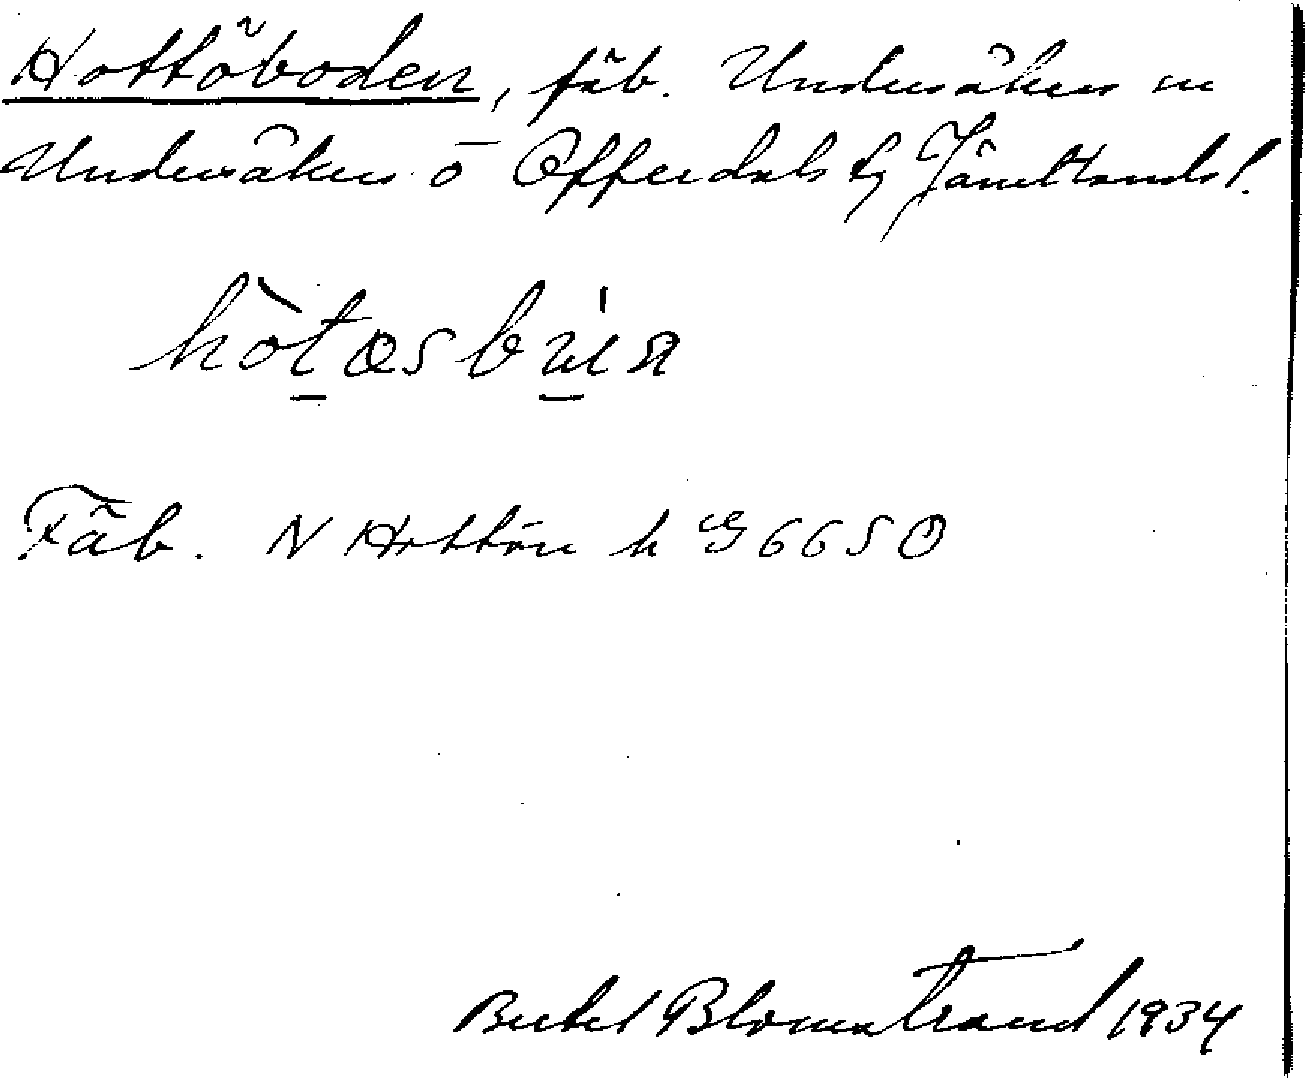 Hottöboden, fäb. Undersåkers sn
Undersåkers o Offerdals tg Jämtlands l.
hòtæsbúɑ
Fäb. N Hottön h G 6650
Bertel Blomstrand 1934